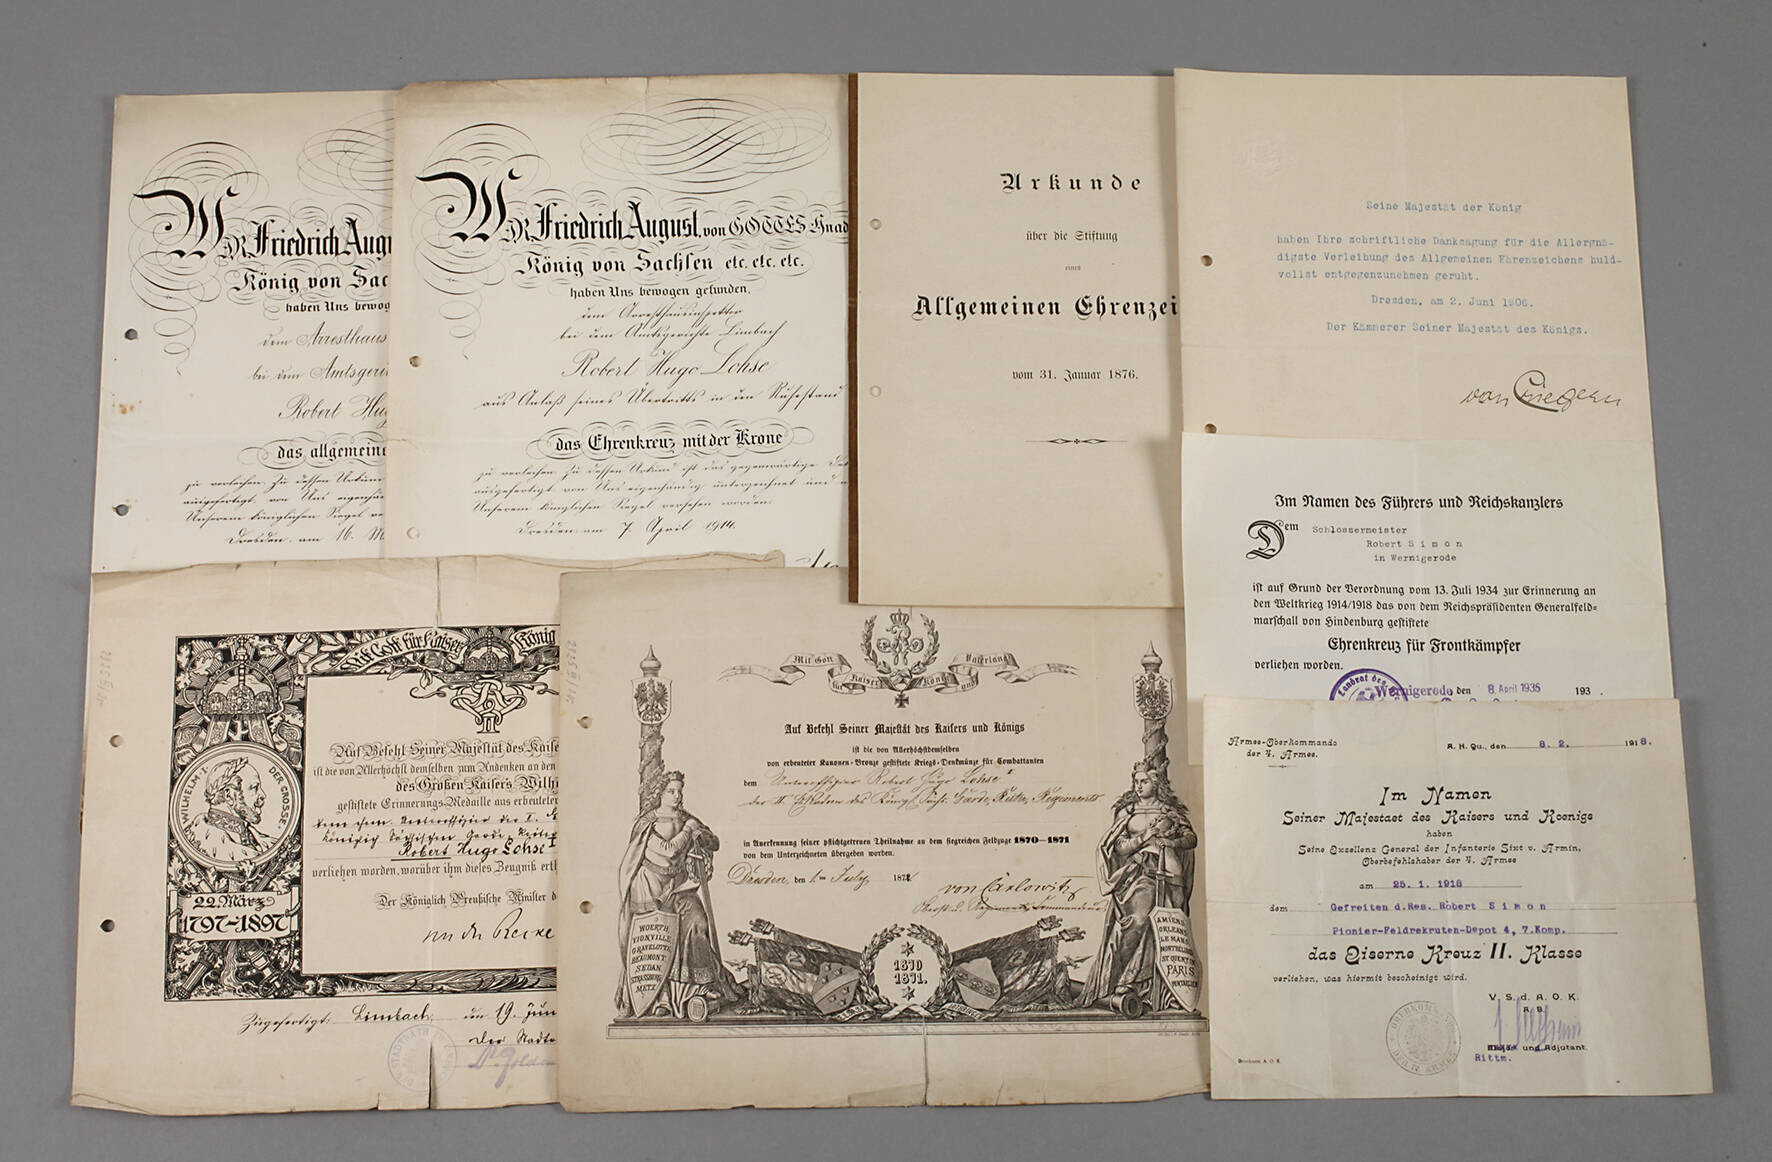 WIR Friedrich Aug
König von Sac
haben Uns bewog
dem Arresthaus
bei dem Amtsgeri
Robert Hug
das allgemeine
zu verleihen. Zu dessen Urkund
ausgefertigt, von Uns eigenhä
Unserem königlichen Siegel ve
Dresden, am 16. M
WIR Friedrich August, von GOTTES Gnad
König von Sachsen etc. etc. etc.
haben Uns bewogen gefunden,
dem Arresthausinspektor
bei dem Amtsgerichte Limbach
Robert Hugo Lohse
aus Anlaß seines Übertritts in den Ruhestand
das Ehrenkreuz mit der Krone
zu verleihen. Zu dessen Urkund ist das gegenwärtige De
ausgefertigt, von Uns eigenhändig unterzeichnet und
Unserem königlichen Siegel versehen worden.
Dresden, am 7. April 1914.
Urkunde
über die Stiftung
eines
Allgemeinen Ehrenzei
vom 31. Januar 1876.
Seine Majestät der König
haben Ihre schriftliche Danksagung für die Allergnä-
digste Verleihung des Allgemeinen Ehrenzeichens huld-
vollst entgegenzunehmen geruht.
Dresden, am 2. Juni 1906.
Der Kämmerer Seiner Majestät des Königs.
von Criegern
Im Namen des Führers und Reichskanzlers
Dem Schlossermeister
Robert Simon
in Wernigerode
ist auf Grund der Verordnung vom 13. Juli 1934 zur Erinnerung an
den Weltkrieg 1914/1918 das von dem Reichspräsidenten Generalfeld-
marschall von Hindenburg gestiftete
Ehrenkreuz für Frontkämpfer
verliehen worden.
Landrat des
Wernigerode den 8. April 1935 193 .
Mit Gott für Kaiser König
WILHELM I. DER GROSSE
22. März
1797-1897
Auf Befehl Seiner Majestät des Kaise
ist die von Allerhöchst demselben zum Andenken an den
des Großen Kaisers Wilh
gestiftete Erinnerungs-Medaille aus erbeutete
dem ehm. Unteroffizier der I.
Königlich Sächsischen Garde Reiter
Robert Hugo Lohse I
verliehen worden, worüber ihm dieses Zeugniß erth
Der Königlich Preußische Minister d
Zugefertigt: Limbach, den 19. Jun
Der Stadtr
Mit Gott für Kaiser König und Vaterland
Auf Befehl Seiner Majestät des Kaisers und Königs
ist die von Allerhöchstdemselben
von erbeuteter Kanonen-Bronze gestiftete Kriegs-Denkmünze für Combattanten
dem Unteroffizier Robert Hugo Lohse I
der II. Eskadron des Königl. Sächs. Garde Reiter Regiments
in Anerkennung seiner pflichtgetreuen Theilnahme an dem siegreichen Feldzuge 1870–1871
von dem Unterzeichneten übergeben worden.
Dresden, den 1ten July 187
von Carlowitz
Oberst u. Regiments Commandeur
WOERTH
VIONVILLE
GRAVELOTTE
BEAUMONT
SEDAN
STRASSBURG
METZ
1870
1871.
AMIENS
ORLEANS
LE MANS
MONTBELIARD
ST QUENTIN
PARIS
PONTARLIER
Armee-Oberkommando
der 4. Armee.
A. H. Qu., den 8. 2. 1918.
Im Namen
Seiner Majestaet des Kaisers und Koenigs
haben
Seine Exzellenz General der Infanterie Sixt v. Armin,
Oberbefehlshaber der 4. Armee
am 25. 1. 1918
dem Gefreiten d.Res. Robert Simon
Pionier-Feldrekruten-Depot 4, 7.Komp.
das Eiserne Kreuz II. Klasse
verliehen, was hiermit bescheinigt wird.
V. S. d. A. O. K.
A. B.
und Adjutant.
Rittm.
OBERKOMMANDO
DER IV. ARMEE
Druckerei A. O. K.